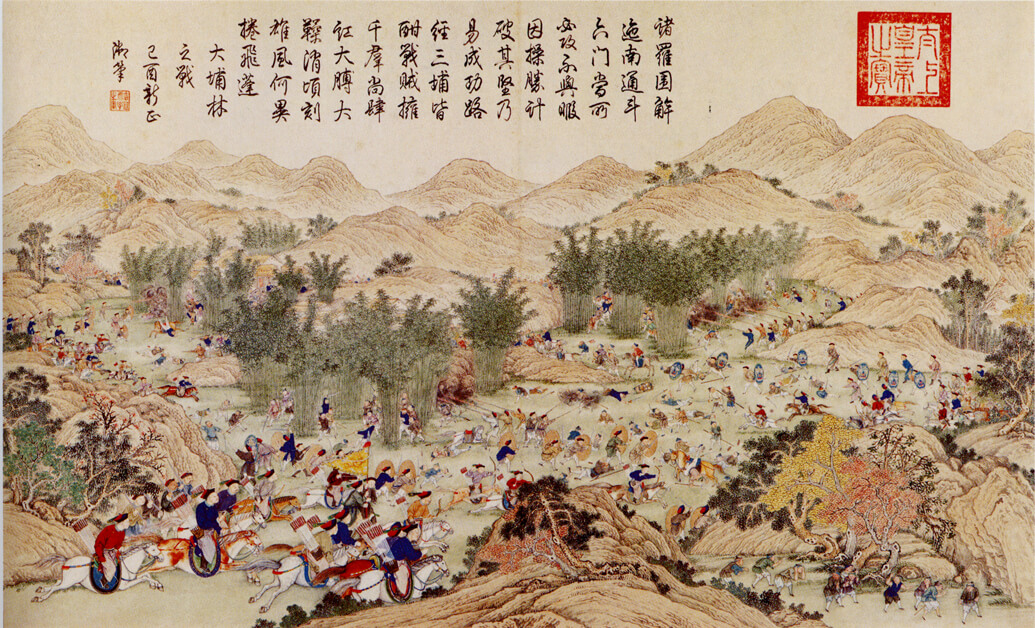 諸羅圍解
迤南通斗
六門當所
必攻不與暇
因操勝計
破其堅乃
易成功路
經三埔皆
酣戰賊擁
千群尚肆
訌大膊大
鞣消頃刻
雄風何異
捲飛蓬
大埔林
之戰
己酉新正
御筆
太上
皇帝
之寶